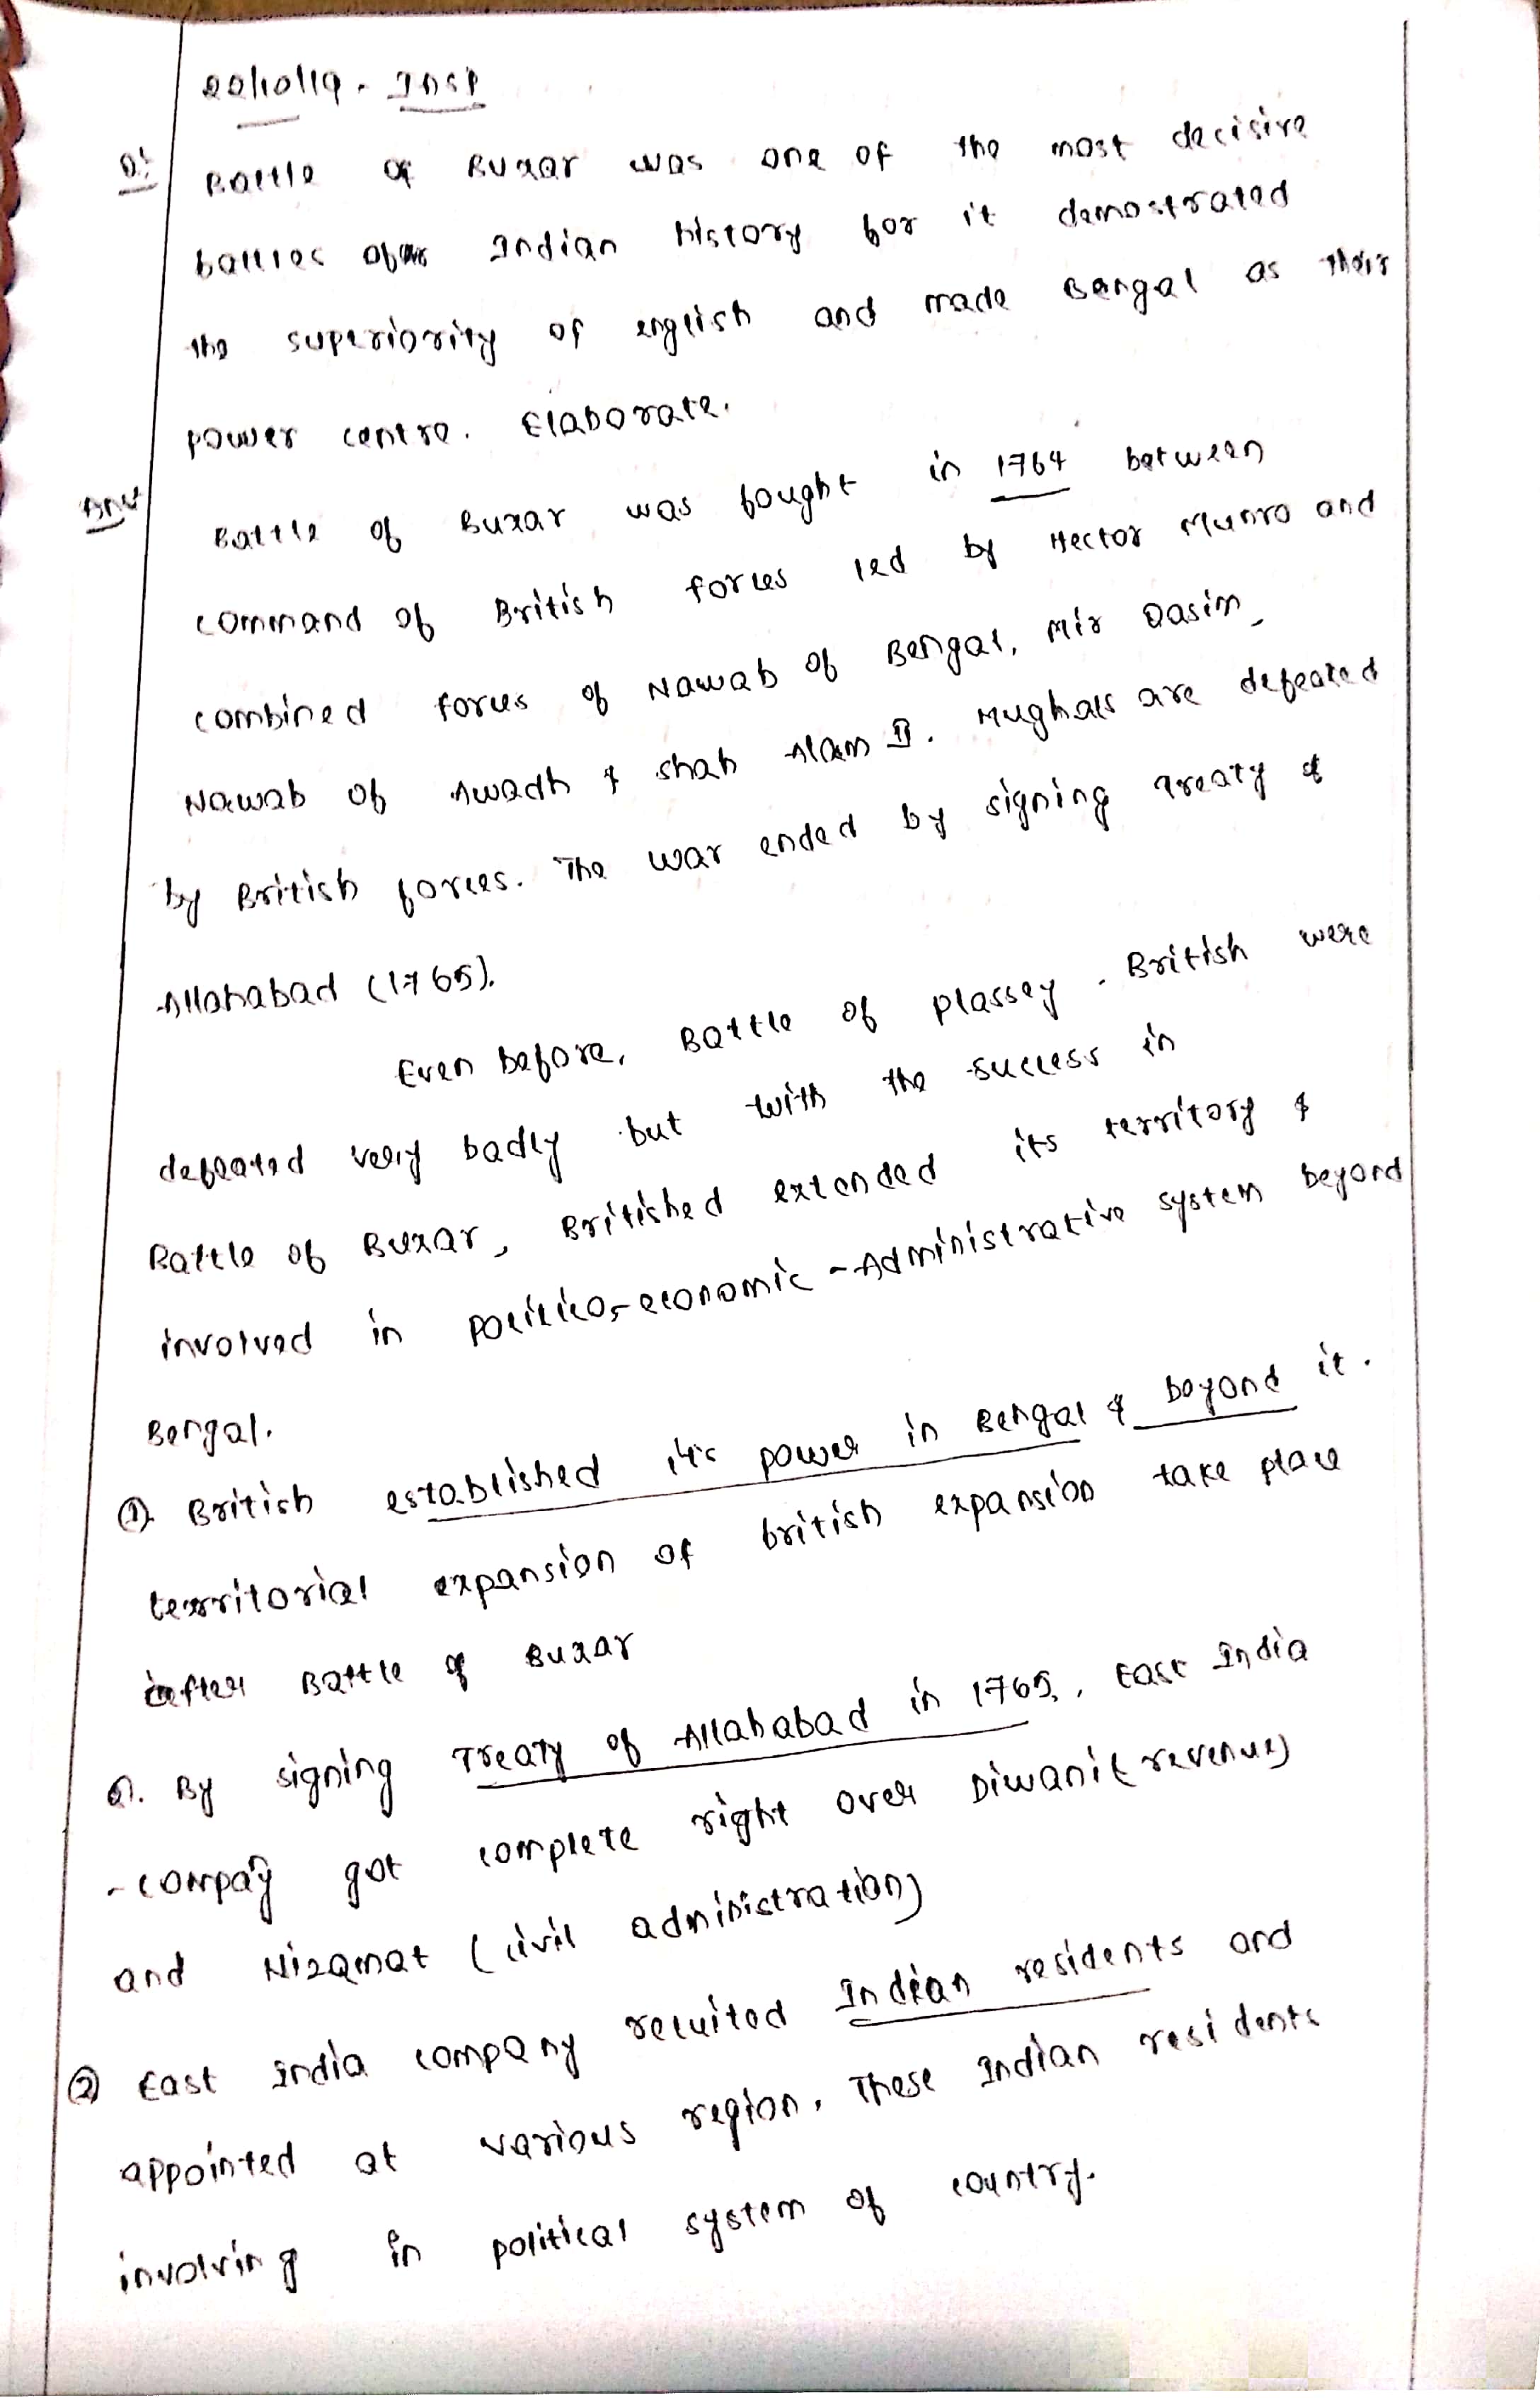 22/10/19 - INSP
Q: Battle of Buxar was one of the most decisive
battles of Indian history for it demostrated
the superiority of english and made Bengal as their
power centre. Elaborate.
Ans Battle of Buxar was fought in 1764 between
command of British forces led by Hector Munro and
combined forces of Nawab of Bengal, Mir Qasim,
Nawab of Awadh & Shah Alam II. Mughals are defeated
by British forces. The war ended by signing Treaty of
Allahabad (1765).
Even before, Battle of plassey. British were
defeated very badly but with the success in
Battle of Buxar, Britished extended its territory &
involved in politico-economic-Administrative system beyond
Bengal.
① British established it's power in Bengal & beyond it.
territorial expansion of british expansion take place
after Battle of Buxar
2. By signing Treaty of Allahabad in 1765, East India
-compay got complete right over Diwani (revenue)
and Nizamat (civil administration)
② East India company recuited Indian residents and
appointed at various region. These Indian residents
involving in political system of country.